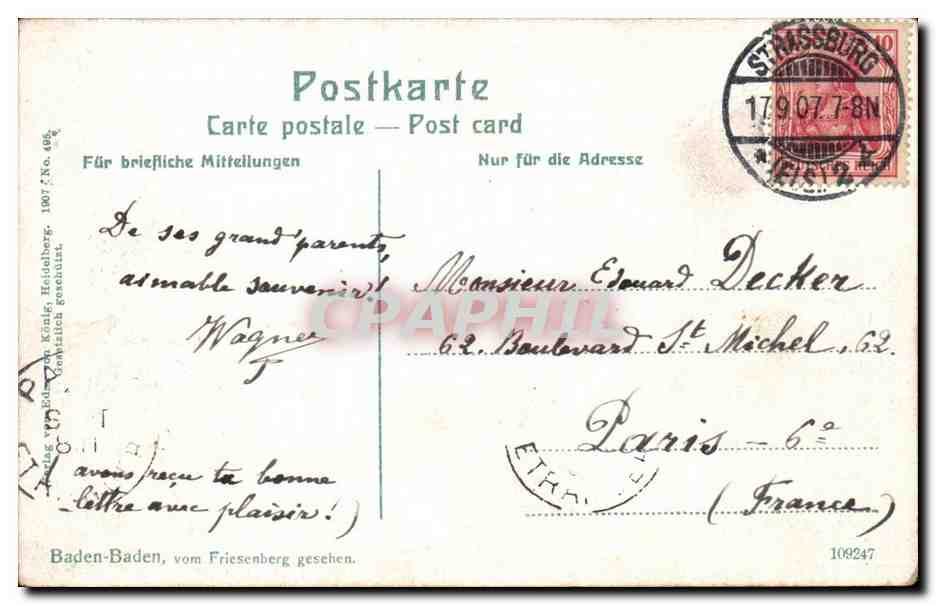 Postkarte
Carte postale — Post card
Für briefliche Mitteilungen
Nur für die Adresse
STRASSBURG
17.9.07.7-8N
* (ELS.) 2 k
10
De ses grand'parents,
aimable souvenir!
Wagner
avons reçu ta bonne
lettre avec plaisir!)
Monsieur Edouard Decker
62. Boulevard St Michel, 62.
Paris – 6e
(France)
ETRANGER
CPAPHIL
Verlag von Edm. von König, Heidelberg. 1907. No. 495.
Gesetzlich geschützt.
Baden-Baden, vom Friesenberg gesehen.
109247